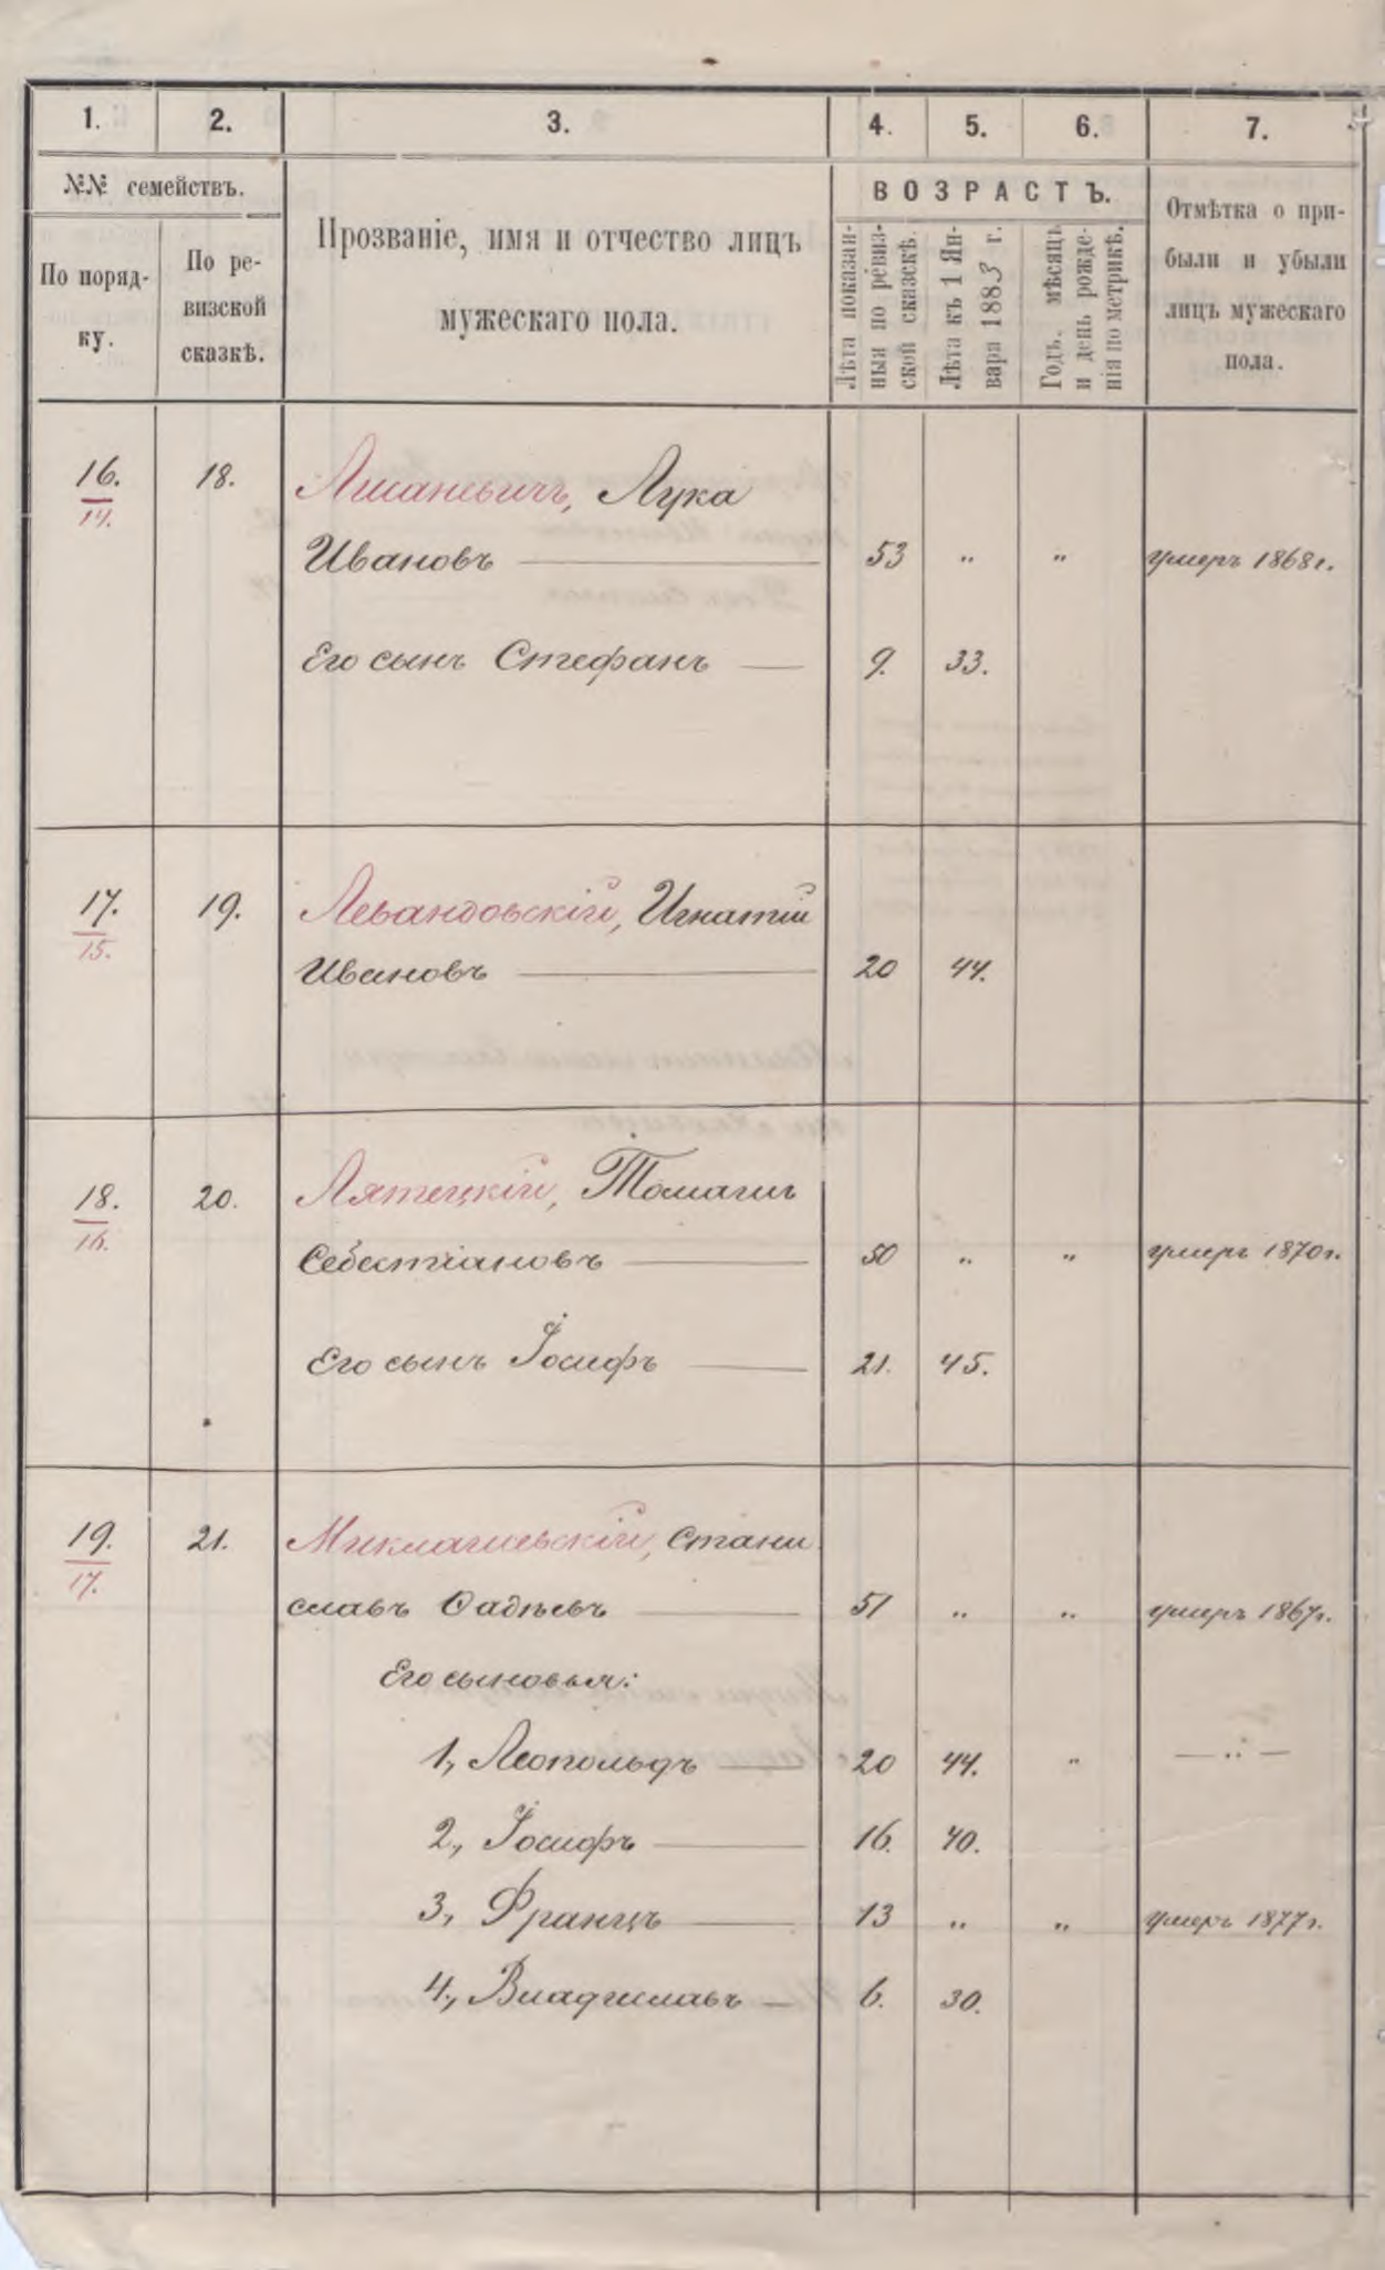 1. 2. 3. 4. 5. 6. 7.
№№ семействъ.
По поряд-
ку.
По ре-
визской
сказкѣ.
Прозваніе, имя и отчество лицъ
мужескаго пола.
ВОЗРАСТЪ.
Лѣта показан-
ныя по ревиз-
ской сказкѣ.
Лѣта къ 1 Ян-
варя 1883 г.
Годъ, мѣсяцъ
и день рожде-
нія по метрикѣ.
Отмѣтка о при-
были и убыли
лицъ мужескаго
пола.
16. 18. Лука
14.
Ивановъ 53 „ „ умеръ 1868 г.
Его сынъ Стефанъ 9. 33.
17. 19. Левандовскій, Игнатій
15.
Ивановъ 20 44.
18. 20. Лятецкій, Томашъ
16.
Себестіановъ 50 „ „ умеръ 1870 г.
Его сынъ Іосифъ 21. 45.
19. 21. Миклашевскій, Стани
17.
славъ Ѳадѣевъ 51 „ „ умеръ 1867 г.
Его сыновья:
1, Леопольдъ 20 44. „ — „ —
2, Іосифъ 16. 40.
3, Францъ 13 „ „ умеръ 1877 г.
4, Владиславъ 6. 30.